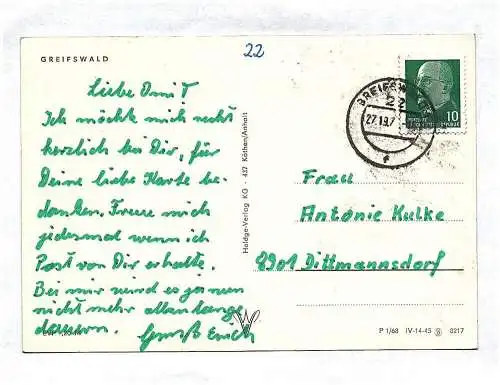 22
GREIFSWALD
Liebe Omi!
Ich möchte mich recht
herzlich bei Dir, für
Deine liebe Karte be-
danken. Freue mich
jedesmal wenn ich
Post von Dir erhalte.
Bei mir wird es ja nun
nicht mehr allzu lange
dauern. Gruß Erich
Holdge-Verlag KG - 437 Köthen/Anhalt
GREIFSWALD
22
27.1
10
Frau
Antonie Kulke
8901 Dittmannsdorf
P 1/68 IV-14-45 8217